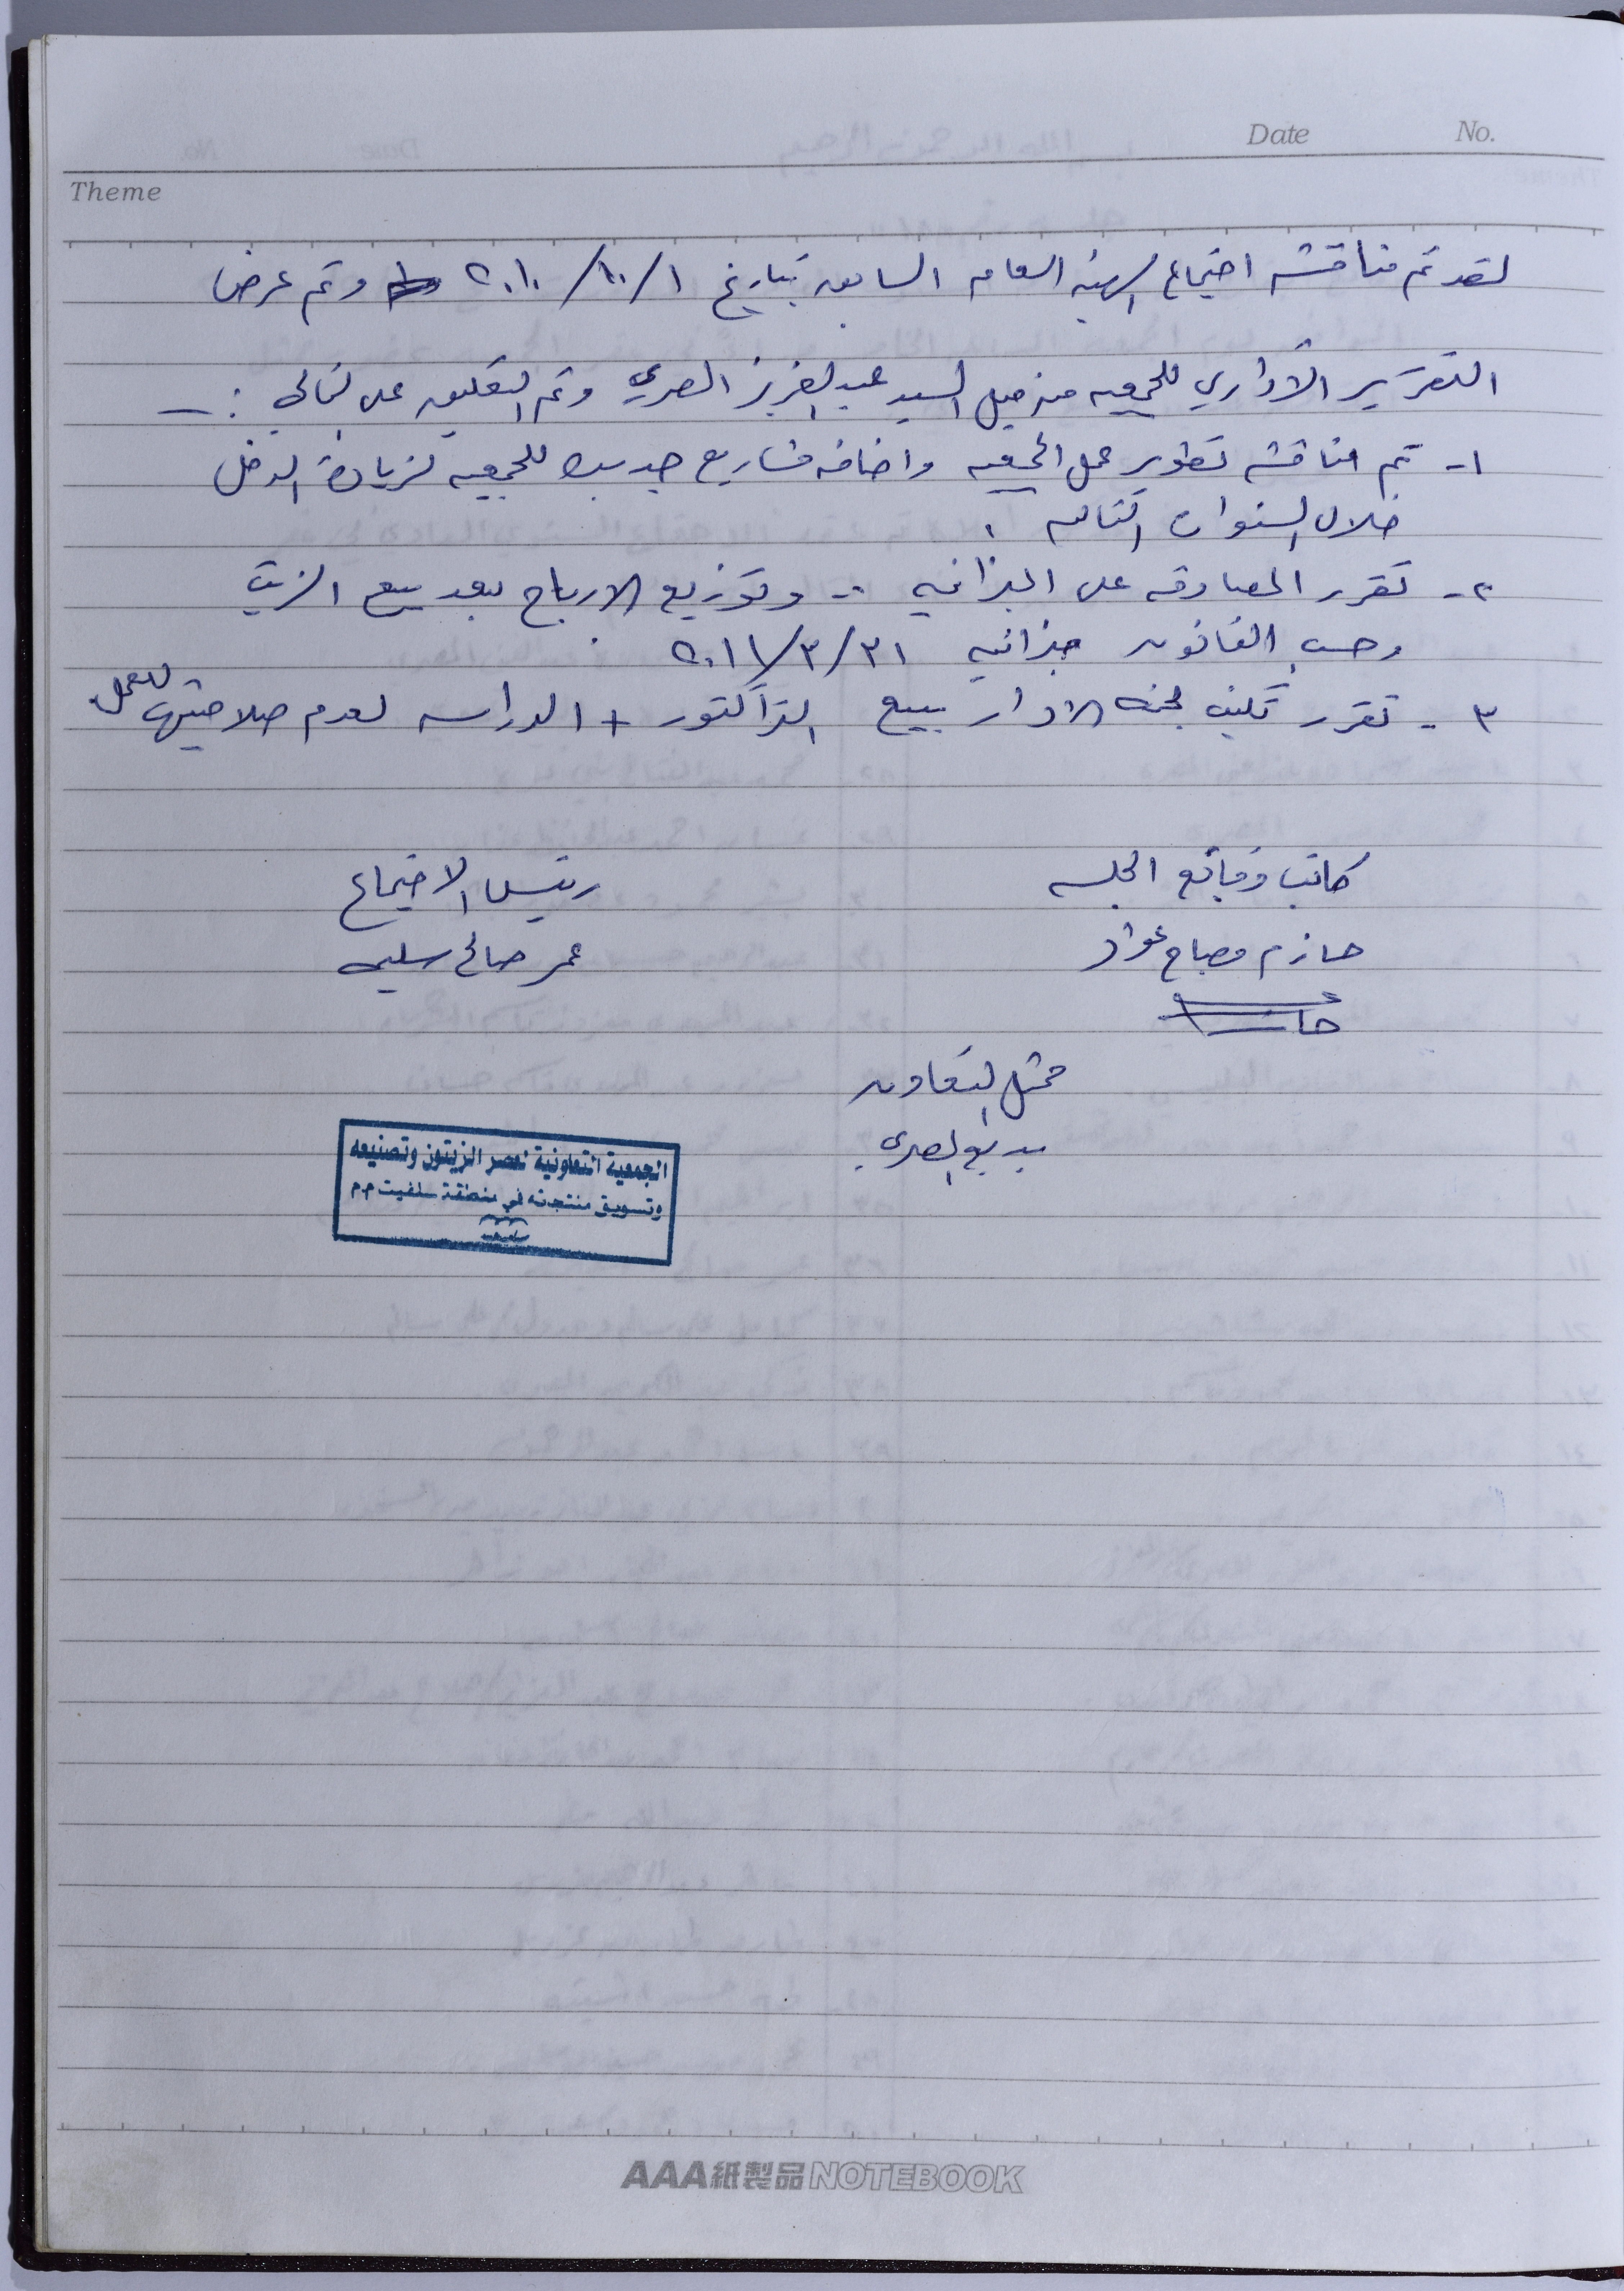 Date No.
Theme
لقد تم مناقشه اجتماع الهيئه العامه السابق بتاريخ ٢٠١٠/١٠/١ وتم عرض
التقرير الاداري للجمعيه من قبل السيد عبد العزيز المصري وتم التعليق على التالي :ـ
١- تم مناقشه تطوير عمل الجمعيه واضافه مشاريع جديده للجمعيه لزيادة الدخل
خلال السنوات التاليه .
٢- تقرر المصادقه على الميزانيه .. وتوزيع الارباح بعد بيع الزيت
وحسب القانون ميزانيه ٢٠١١/٣/٣١ .
٣- تقرر تكليف لجنه الادارة ببيع التراكتور + الدراسه لعدم صلاحيتها للعمل.
كاتب وقائع الجلسه رئيس الاجتماع
حازم مصباح عواد عمر صالح سليمه
حازم
ممثل التعاون
بديع المصري
الجمعية التعاونية لعصر الزيتون وتصنيعه
وتسويق منتجاته في منطقة سلفيت م.م
سلفيت
AAA紙製品NOTEBOOK